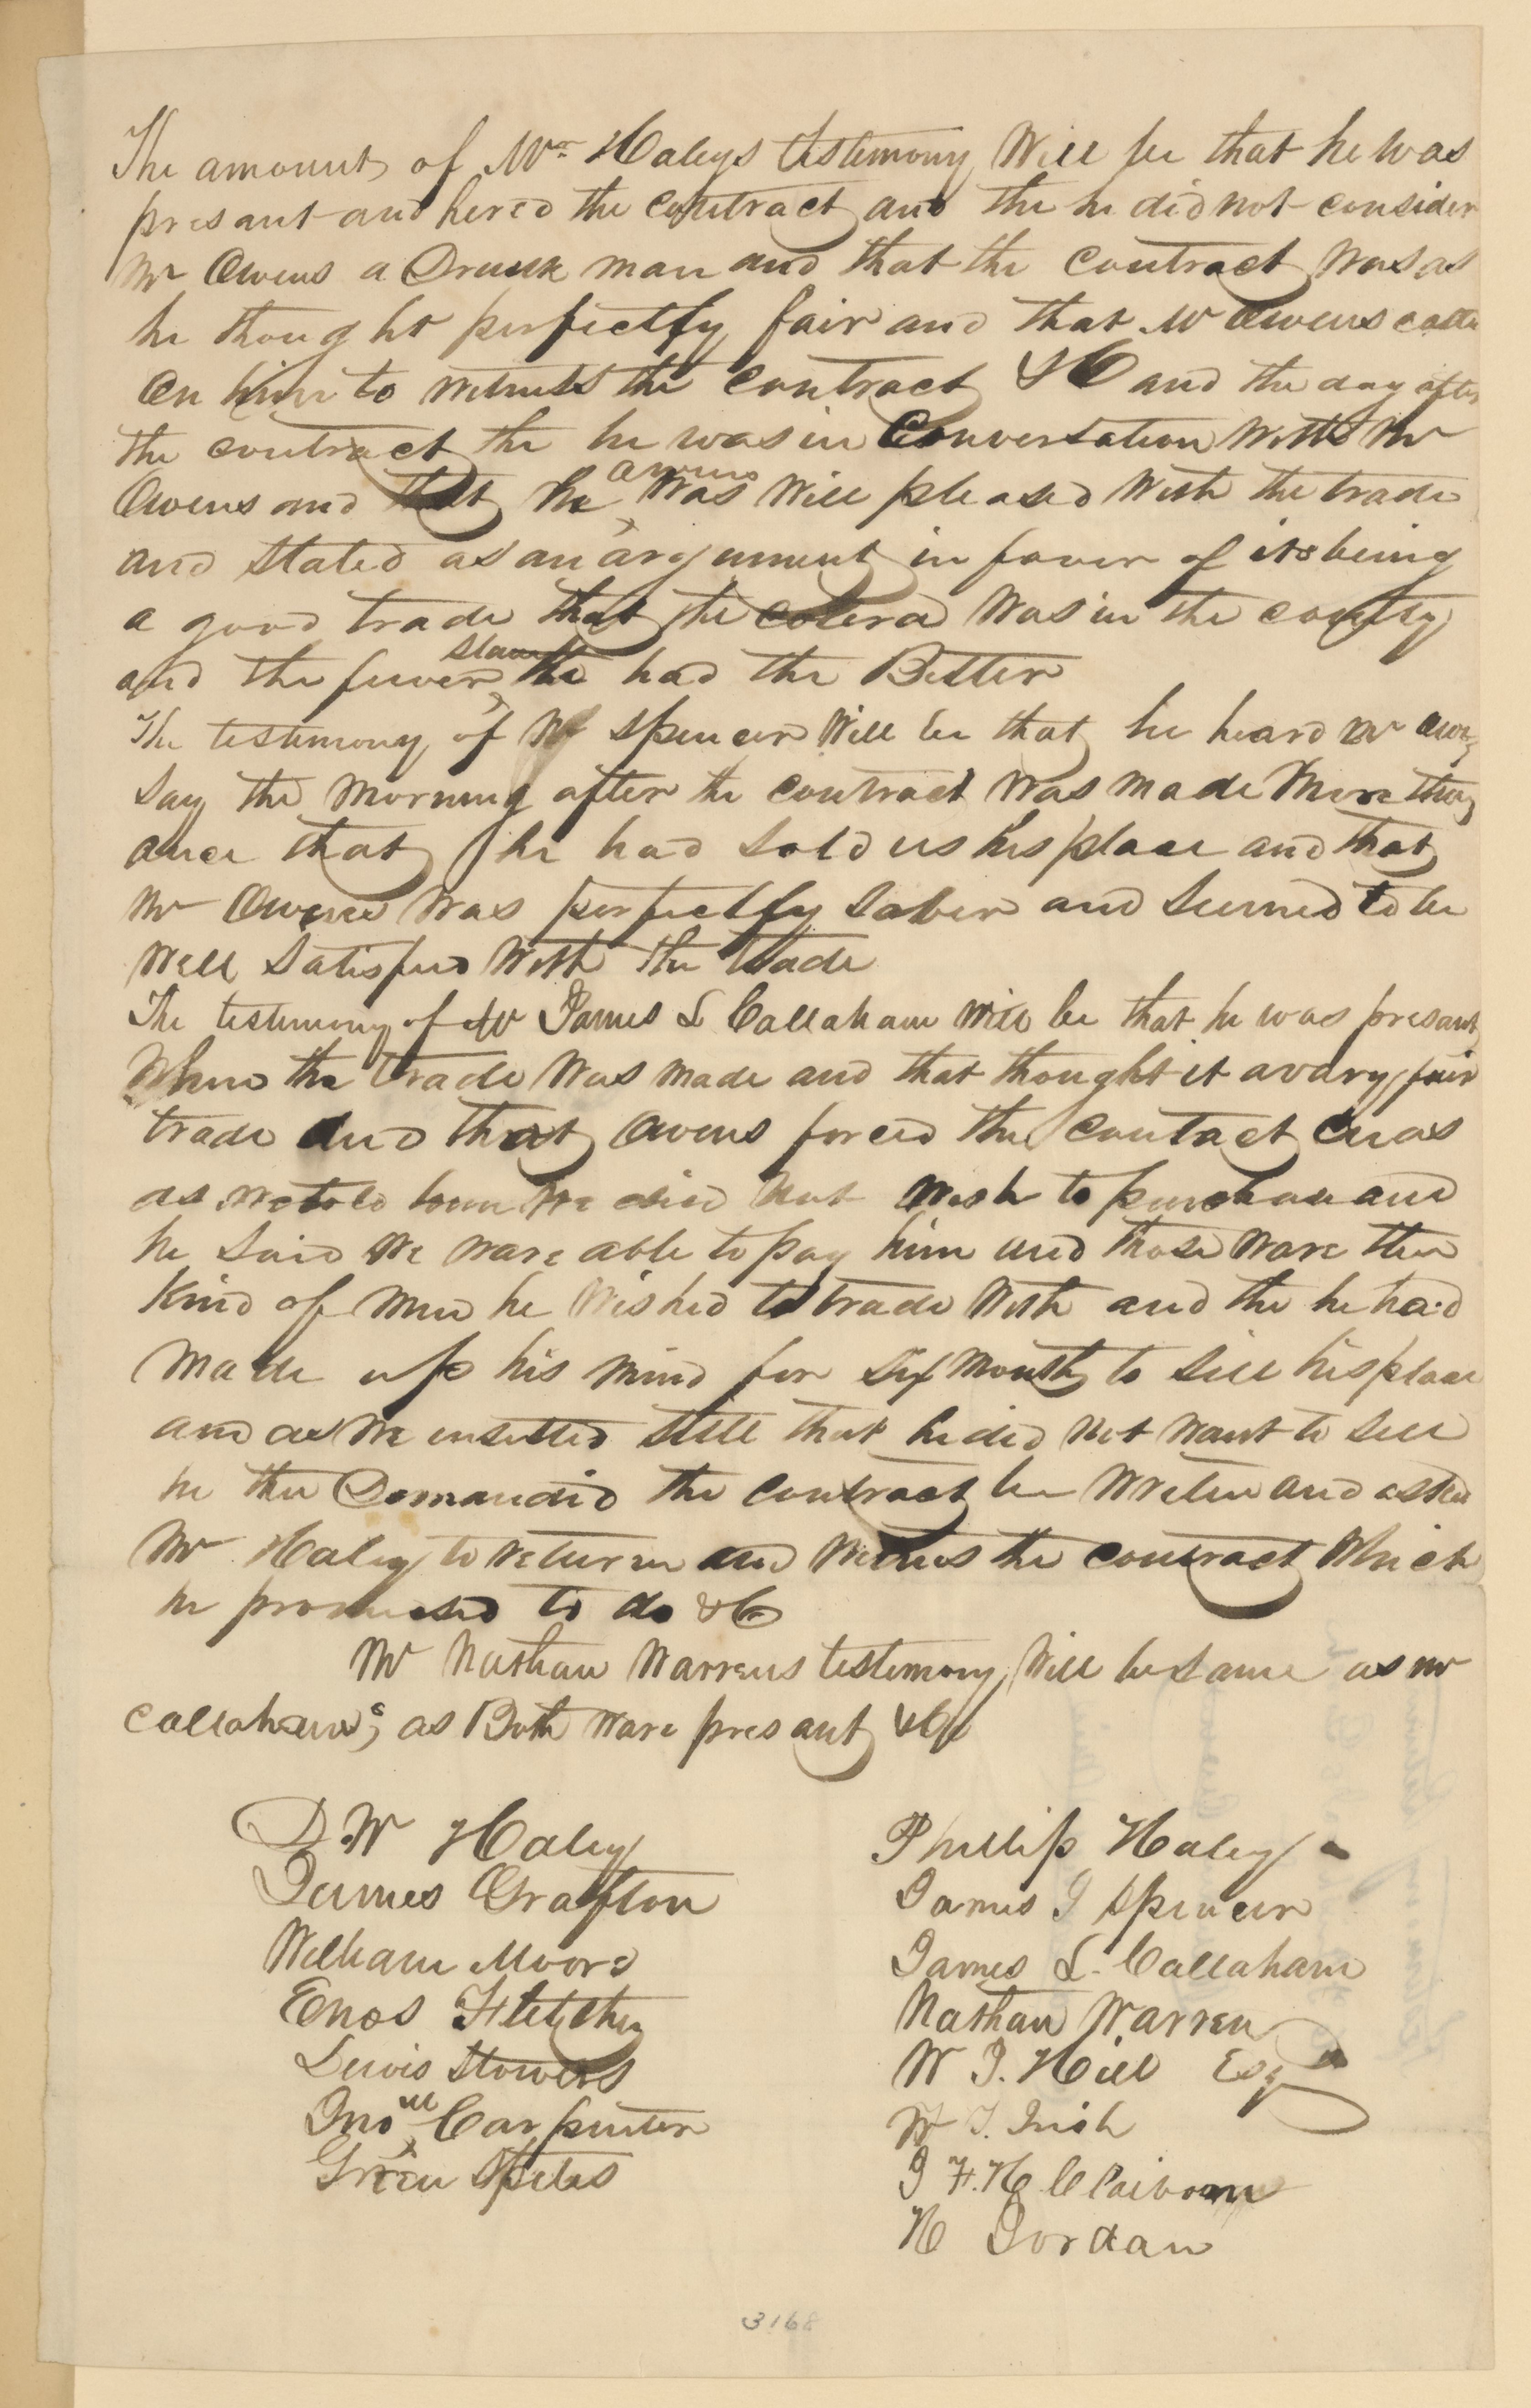 The amount of Mr Haleys testimony Will be that he was
presant and hered the contract and the he did not consider
Mr Owens a Drunk man and that the contract was as
he thought perfectly fair and that Mr Owens calld
on him to witness the contract &C and the day after
the contract the he was in Conversation with Mr
Owens and that he owens was will pleased with the trade
and stated as an argument in favor of its being
a good trade that the colera was in the county
and the fewer slaves he had the Better
The testimony of Mr Spencer Will be that he heard Mr Owens
say the Morning after the contract was made More than
once that he had sold us his place and that
Mr Owens was perfectly sober and seemed to be
well satisfied with the trade
The testimony of Mr James L Callaham will be that he was presant
When the trade was made and that thought it a vary fair
trade and that Owens forced the contract on us
as we told him we did not wish to purchase and
he said we ware able to pay him and those ware the
kind of men he wished to trade with and the he had
made up his mind for six month to sell his place
and as we insisted still that he did not want to sell
he then Demanded the contract be writen and asked
Mr Haley to return and witness the contract which
he promised to do &C
Mr Nathan Warrens testimony Will be same as mr
Callaham's as Both ware presant &C
D. W Haley
James Grafton
William Moore
Enos Fletcher
Lewis Stowers
Jno Carpenter
Green Spiles
Phillip Haley
James J Spencer
James L. Callaham
Nathan Warren
W J. Hill Esq
W T. Irish
J F. H Claiborne
H Jordan
3168